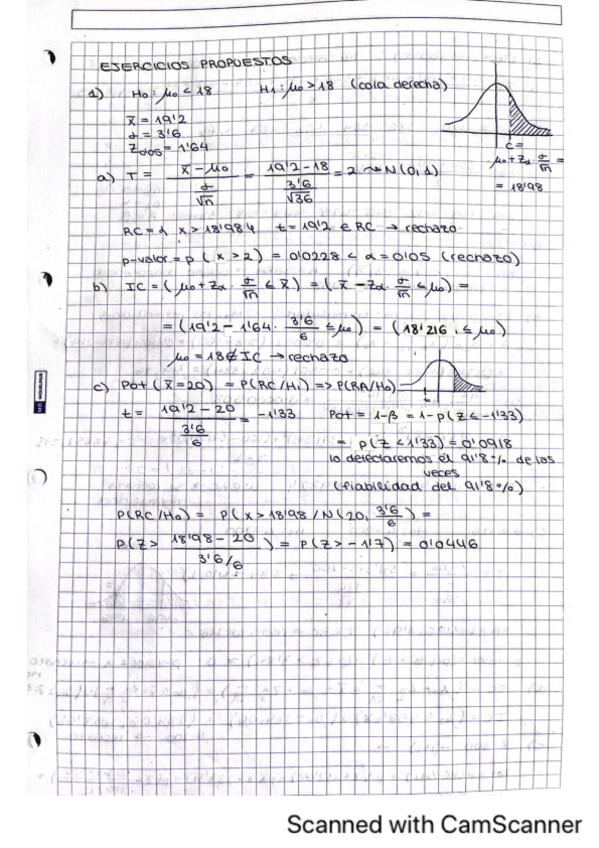 EJERCICIOS PROPUESTOS
1) H₀: μ₀ < 18 H₁: μ₀ > 18 (cola derecha)
x̄ = 19'2
σ = 3'6
Z₀'₀₅ = 1'64
c =
μ₀ + Zα σ/√n =
= 18'98
a) T = (x̄ - μ₀) / (σ/√n) = (19'2 - 18) / (3'6/√36) = 2 ~> N(0,1)
RC = { x > 18'984 t = 19'2 ∈ RC → rechazo
p-valor = p (x > 2) = 0'0228 < α = 0'05 (rechazo)
b) IC = (μ₀ + Zα · σ/√n ≤ x̄) = (x̄ - Zα · σ/√n ≤ μ₀) =
= (19'2 - 1'64 · 3'6/6 ≤ μ₀) = (18'216 ≤ μ₀)
μ₀ = 18 ∉ IC → rechazo
c) Pot (x̄ = 20) = P(RC/H₁) => P(RA/H₀)
t = (19'2 - 20) / (3'6/6) = -1'33 Pot = 1-β = 1-p(Z ≤ -1'33)
= p(Z < 1'33) = 0'0918
lo detectaremos el 91'8% de las
veces
(fiabilidad del 91'8%)
P(RC/H₀) = P(x > 18'98 / N(20, 3'6/6) =
P(Z > (18'98 - 20) / (3'6/6)) = P(Z > -1'7) = 0'0446
Scanned with CamScanner